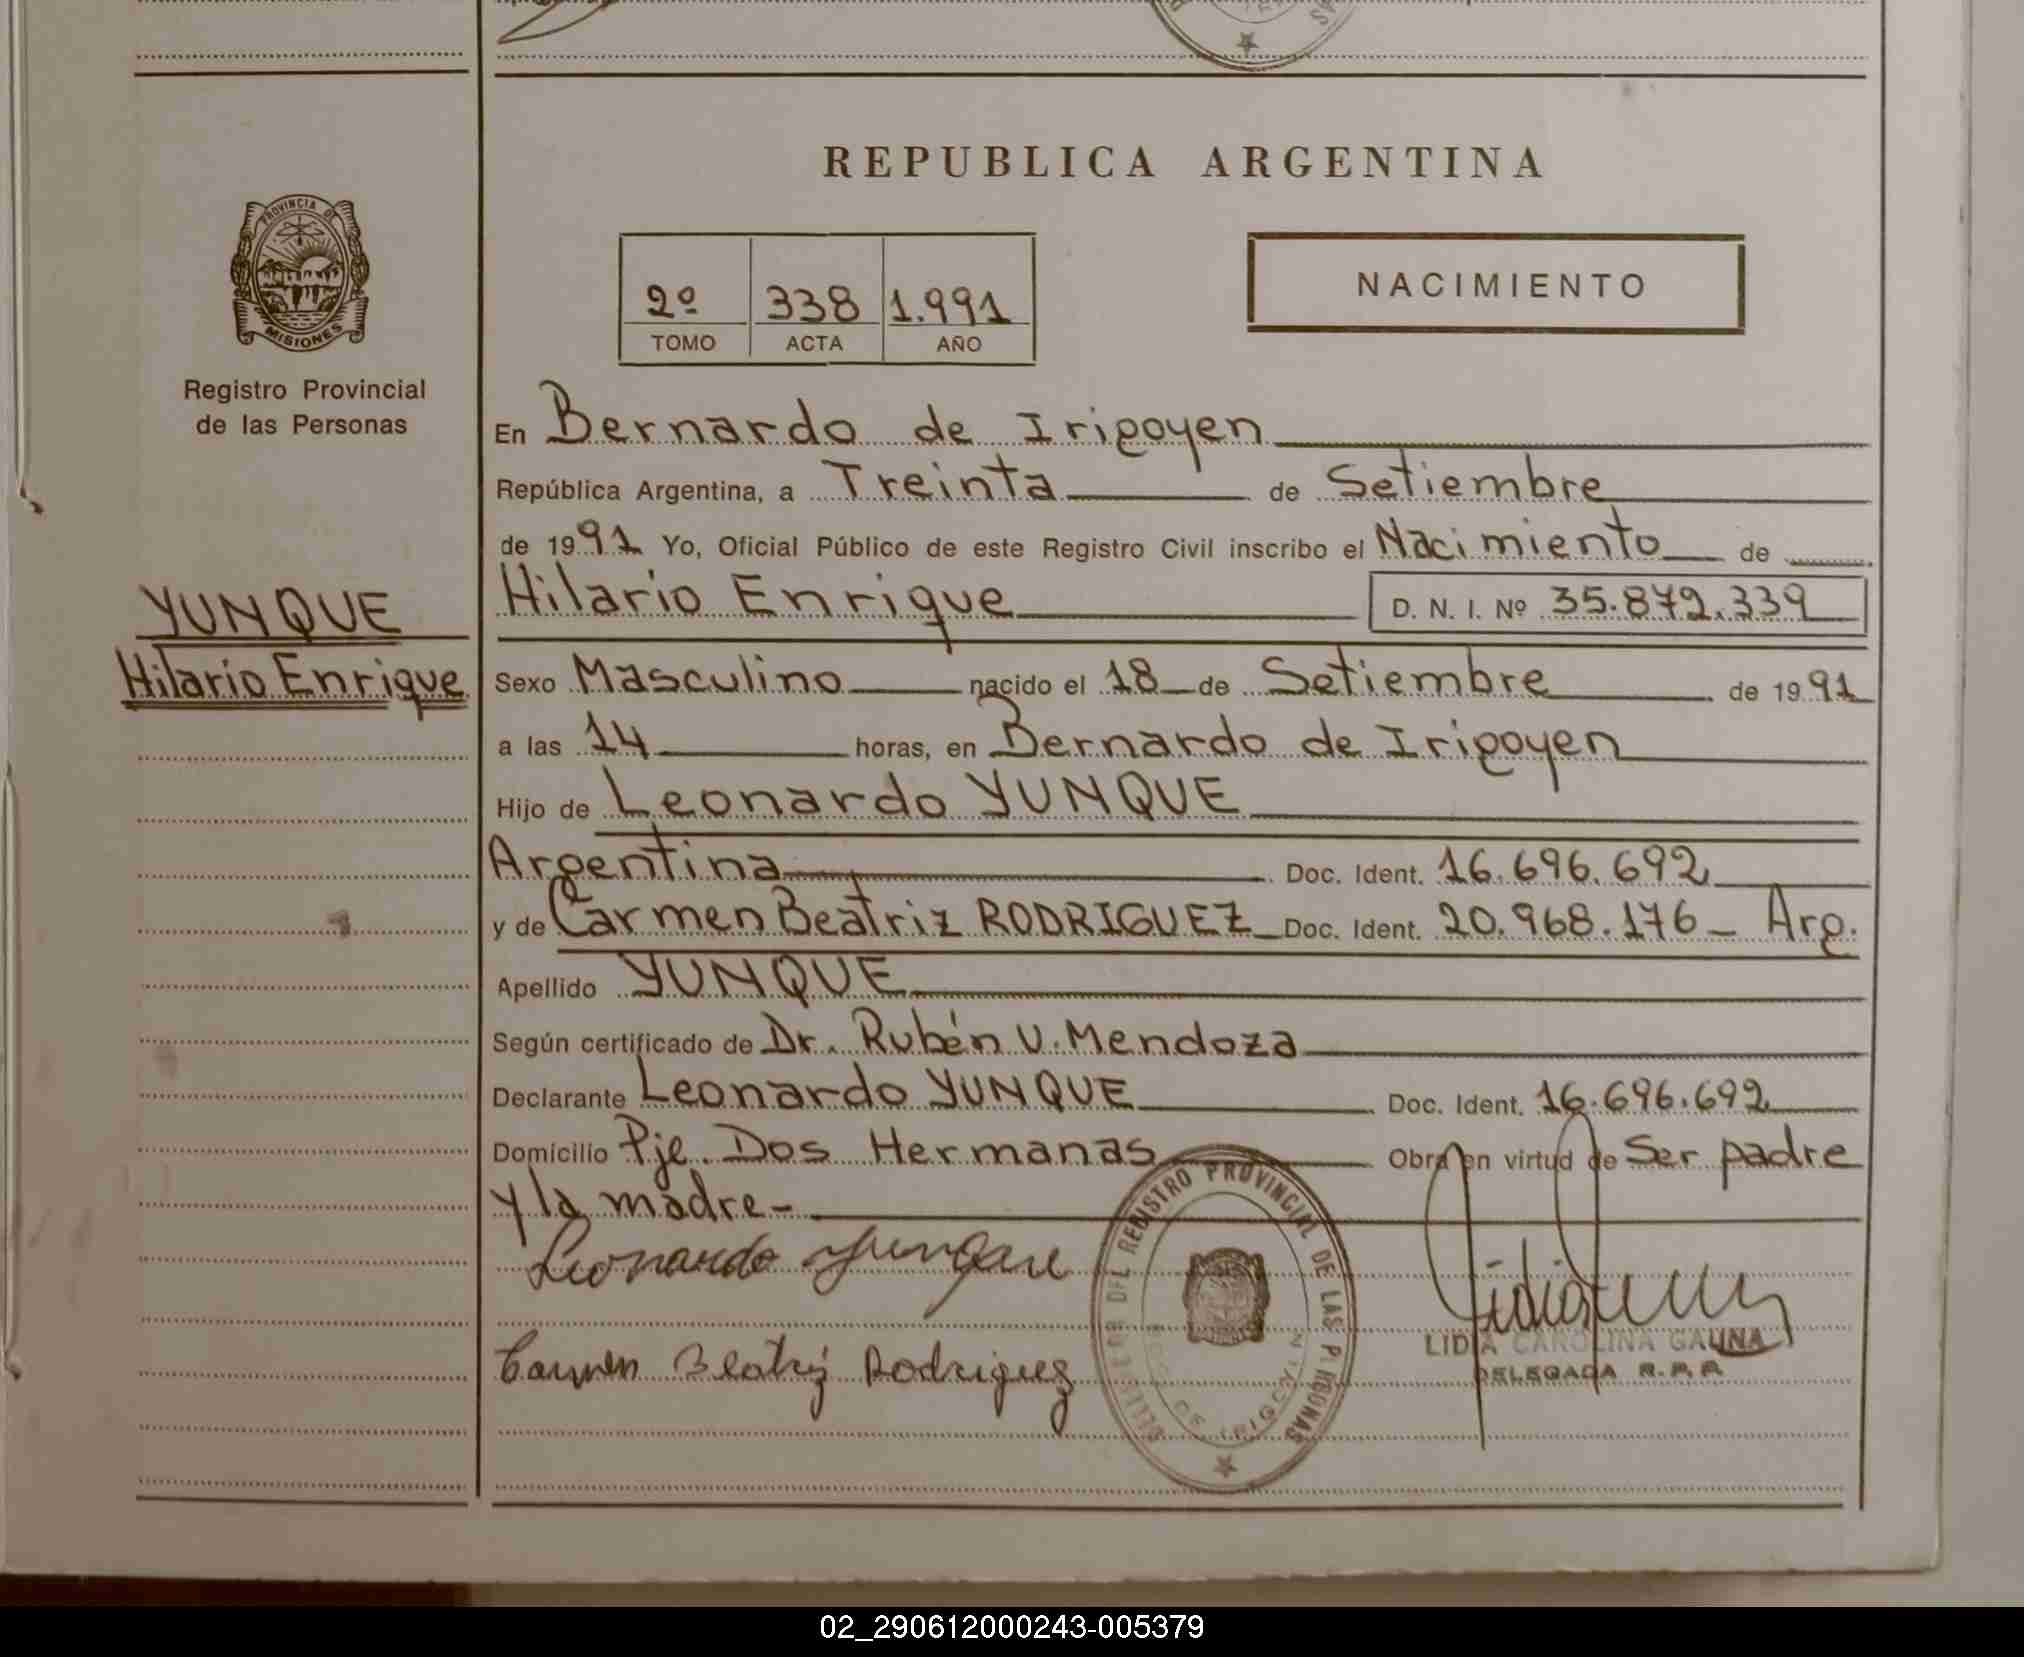 REPUBLICA ARGENTINA
PROVINCIA DE
MISIONES
Registro Provincial
de las Personas
2º 338 1.991
TOMO ACTA AÑO
NACIMIENTO
En Bernardo de Irigoyen
República Argentina, a Treinta de Setiembre
de 1991 Yo, Oficial Público de este Registro Civil inscribo el Nacimiento de
Hilario Enrique D. N. I. Nº 35.872.339
YUNQUE
Hilario Enrique
Sexo Masculino nacido el 18 de Setiembre de 1991
a las 14 horas, en Bernardo de Irigoyen
Hijo de Leonardo YUNQUE
Argentina Doc. Ident. 16.696.692
y de Carmen Beatriz RODRIGUEZ Doc. Ident. 20.968.176 - Arg.
Apellido YUNQUE
Según certificado de Dr. Rubén V. Mendoza
Declarante Leonardo YUNQUE Doc. Ident. 16.696.692
Domicilio Pje. Dos Hermanas Obra en virtud de Ser padre
y la madre -
Leonardo Yunque
DEL REGISTRO PROVINCIAL DE LAS PERSONAS
DE IRIGOYEN
LIDIA CAROLINA GAUNA
DELEGADA R.P.P.
Carmen Beatriz Rodriguez
02_290612000243-005379